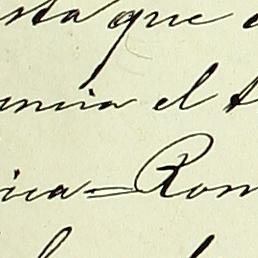 sta que
uncia el
ica=Rom